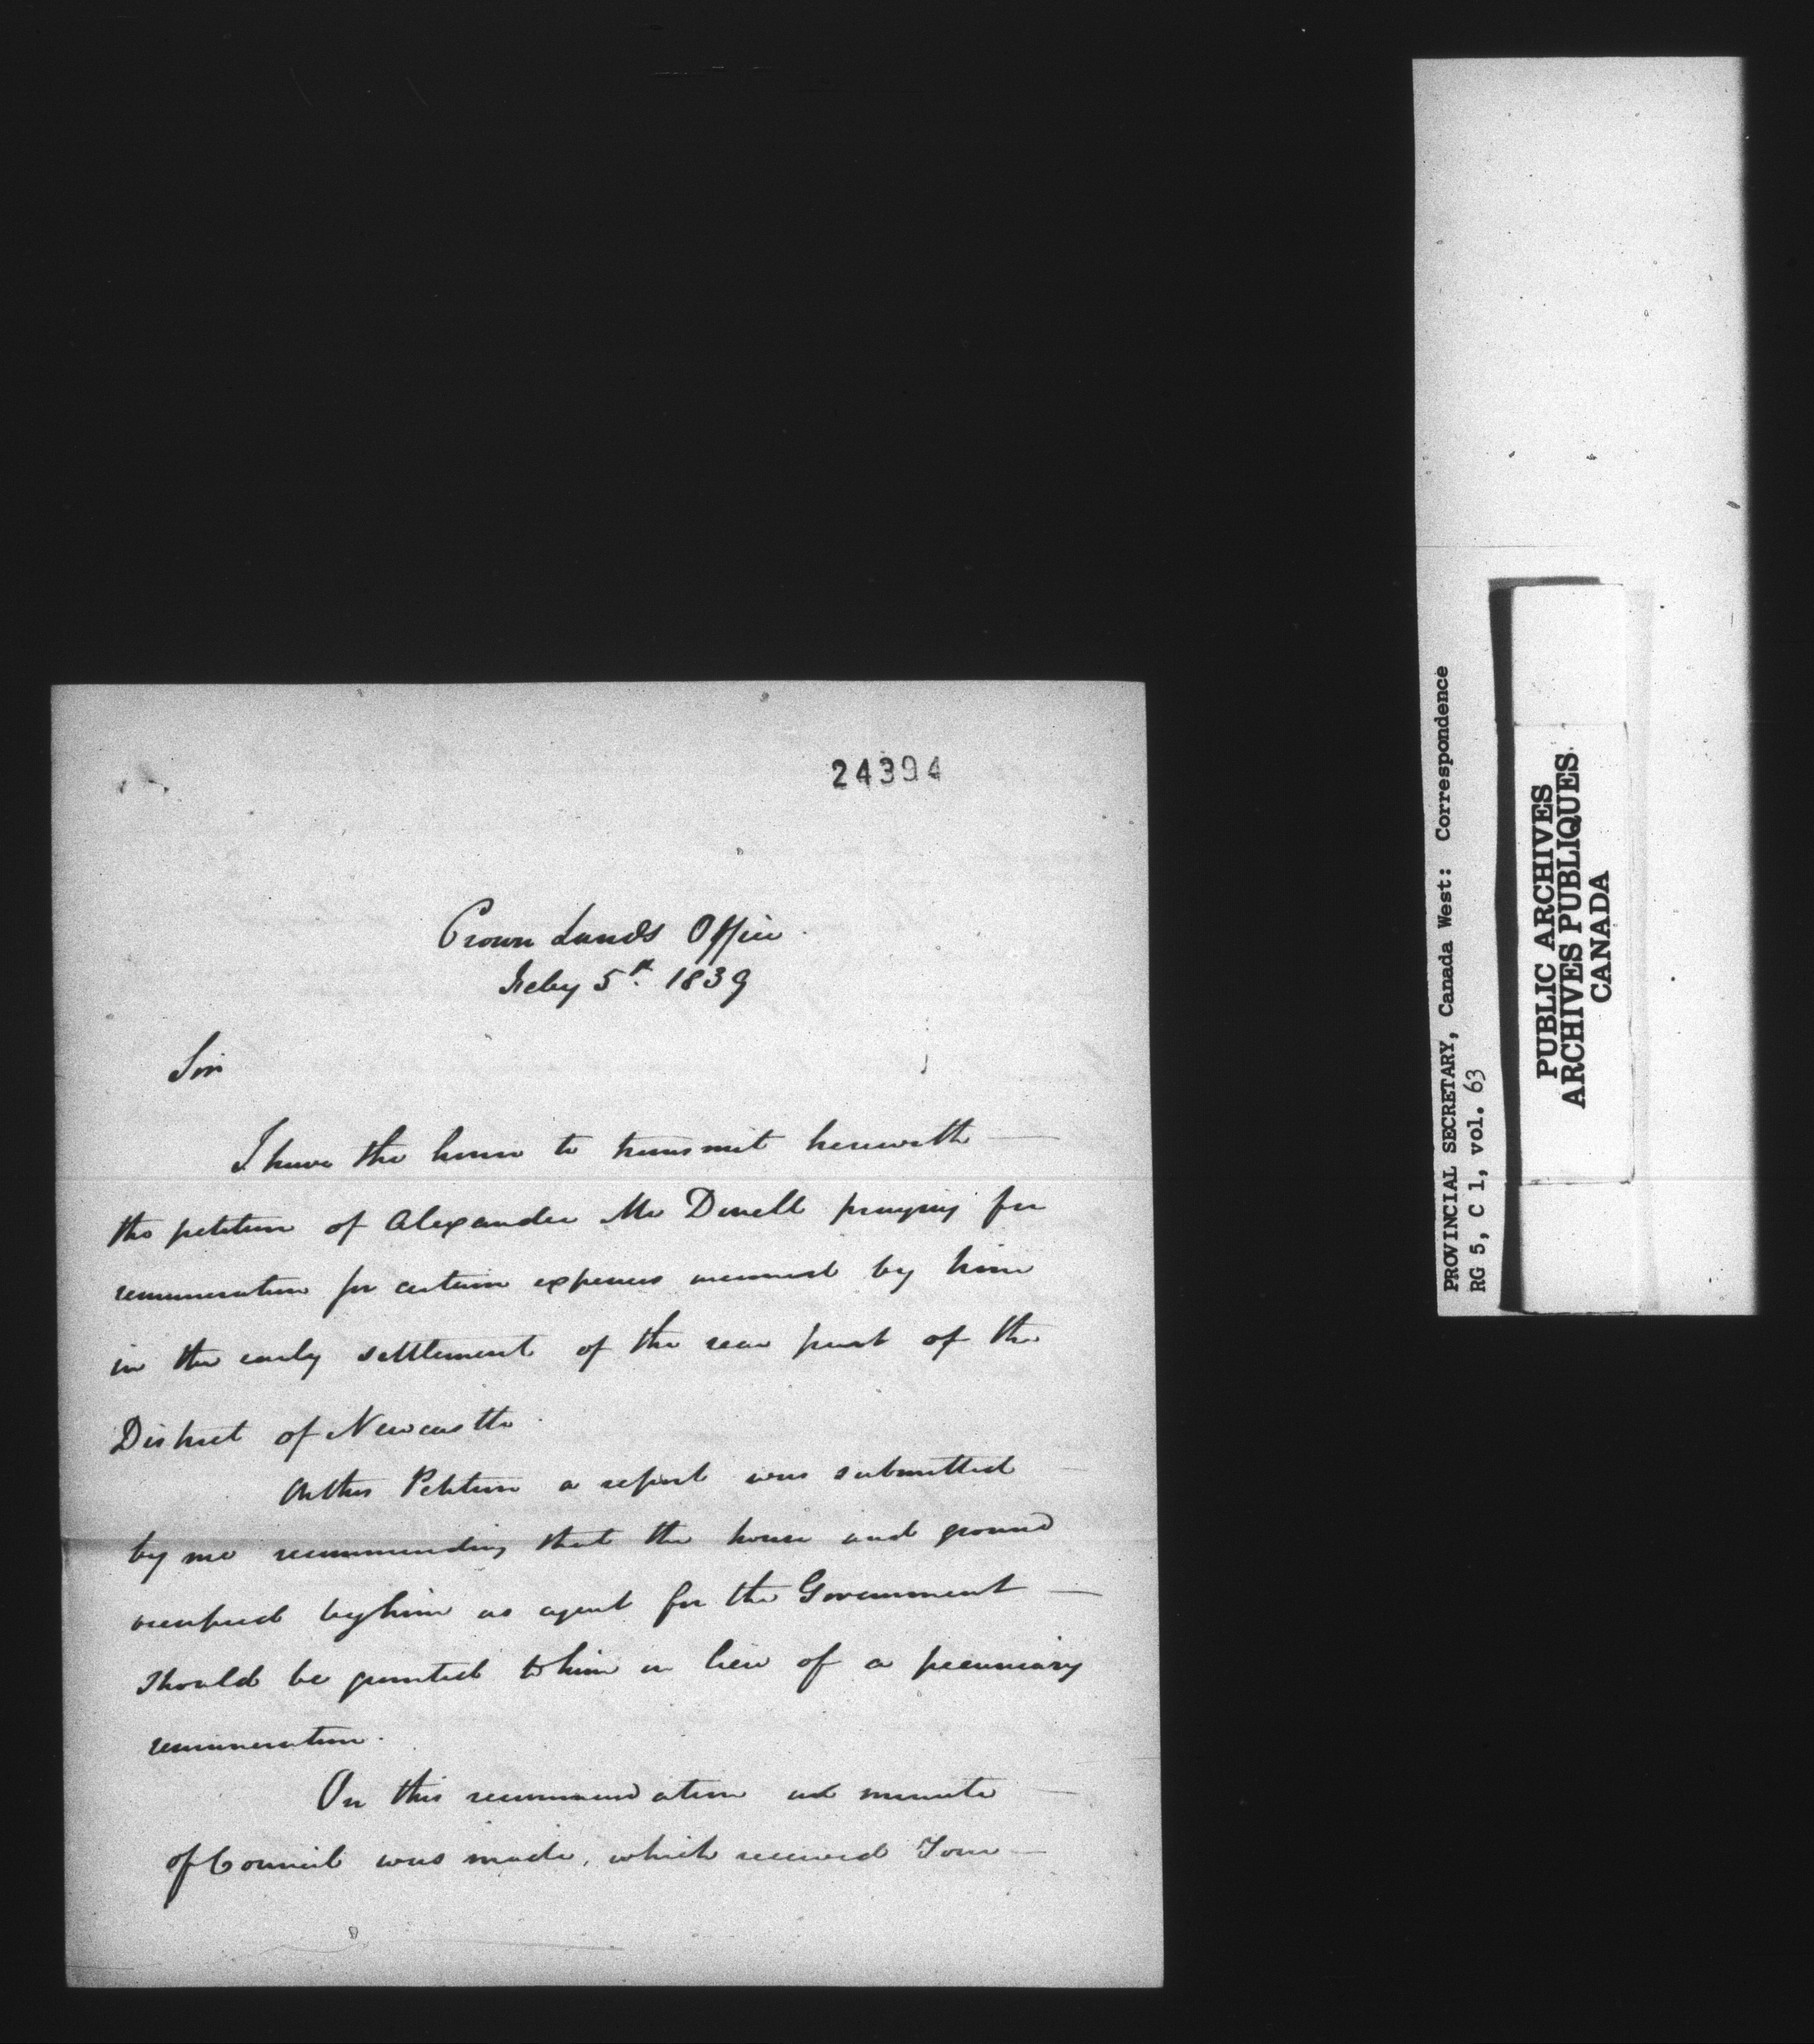 24394
Crown Lands Office
Feby 5th. 1839
Sir
I have the honor to transmit herewith
the petition of Alexander Mc Donell praying for
remuneration for certain expenses incurred by him
in the early settlement of the rear part of the
District of Newcastle.
On this Petition a report was submitted
by me recommending that the house and ground
occupied by him as agent for the Government
should be granted to him in lieu of a pecuniary
remuneration.
On this recommendation minute
of Council was made, which received
PROVINCIAL SECRETARY, Canada West: Correspondence
RG 5, C 1, vol. 63
PUBLIC ARCHIVES
ARCHIVES PUBLIQUES
CANADA